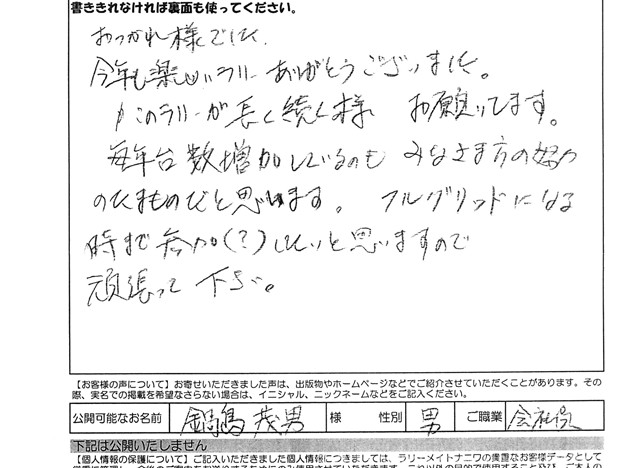 書ききれなければ裏面も使ってください。
おつかれ様でした。
今年も楽しいラリーありがとうございました。
このラリーが長く続く様 お願いしてます。
毎年台数増加しているのも みなさま方の努力
のたまものだと思います。 フルグリッドになる
時まで参加(?)したいと思いますので
頑張って下さい。
【お客様の声について】お寄せいただきました声は、出版物やホームページなどでご紹介させていただくことがあります。その
際、実名での掲載を希望なさらない場合は、イニシャル、ニックネームなどをご記入ください。
公開可能なお名前 鍋島 茂男 様 性別 男 ご職業 会社役
下記は公開いたしません
【個人情報の保護について】ご記入いただきました個人情報につきましては、ラリーメイトナニワの貴重なお客様データとして